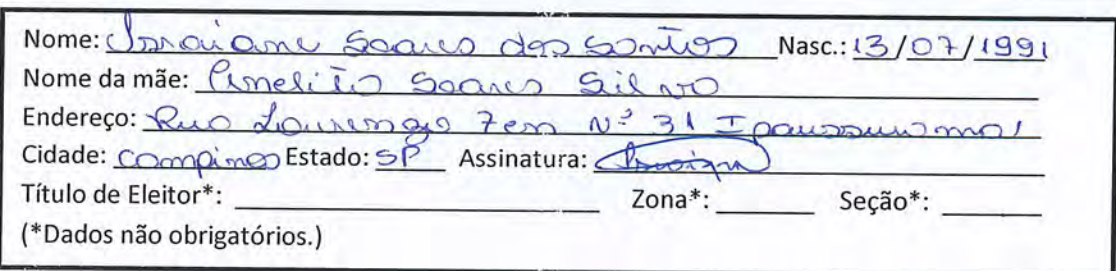 Nome: Soares dos Santos Nasc.: 13/07/1991
Nome da mãe: Soares Silva
Endereço: Rua Lourenço Nº 31
Cidade: Campinas Estado: SP Assinatura:
Título de Eleitor*: Zona*: Seção*:
(*Dados não obrigatórios.)